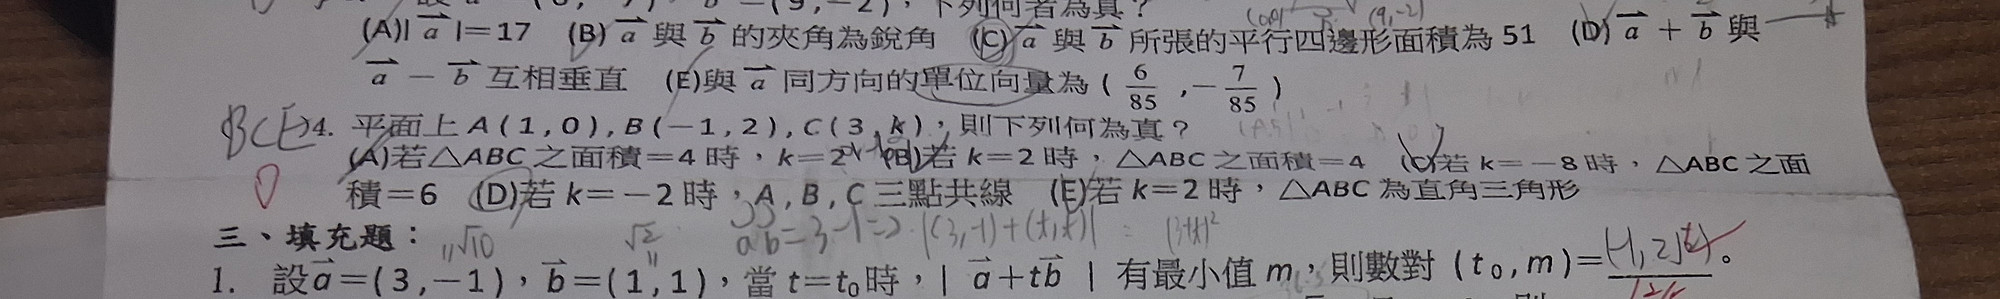 (A)| a |=17 (B) a 與 b 的夾角為銳角 (C) a 與 b 所張的平行四邊形面積為 51 (D) a + b 與
a − b 互相垂直 (E)與 a 同方向的單位向量為 ( 6/85 ,− 7/85 )
BCE 4. 平面上 A(1,0),B(−1,2),C(3,k),則下列何為真?
(A)若△ABC 之面積=4 時,k=2 (B)若 k=2 時,△ABC 之面積=4 (C)若 k=−8 時,△ABC 之面
積=6 (D)若 k=−2 時,A,B,C 三點共線 (E)若 k=2 時,△ABC 為直角三角形
三、填充題:
√10 √2 ab=3-1=2 |(3,-1)+(t,t)|
1. 設a=(3,−1),b=(1,1),當 t=t₀時,| a+tb | 有最小值 m,則數對 (t₀,m)=(-1,2√2)。